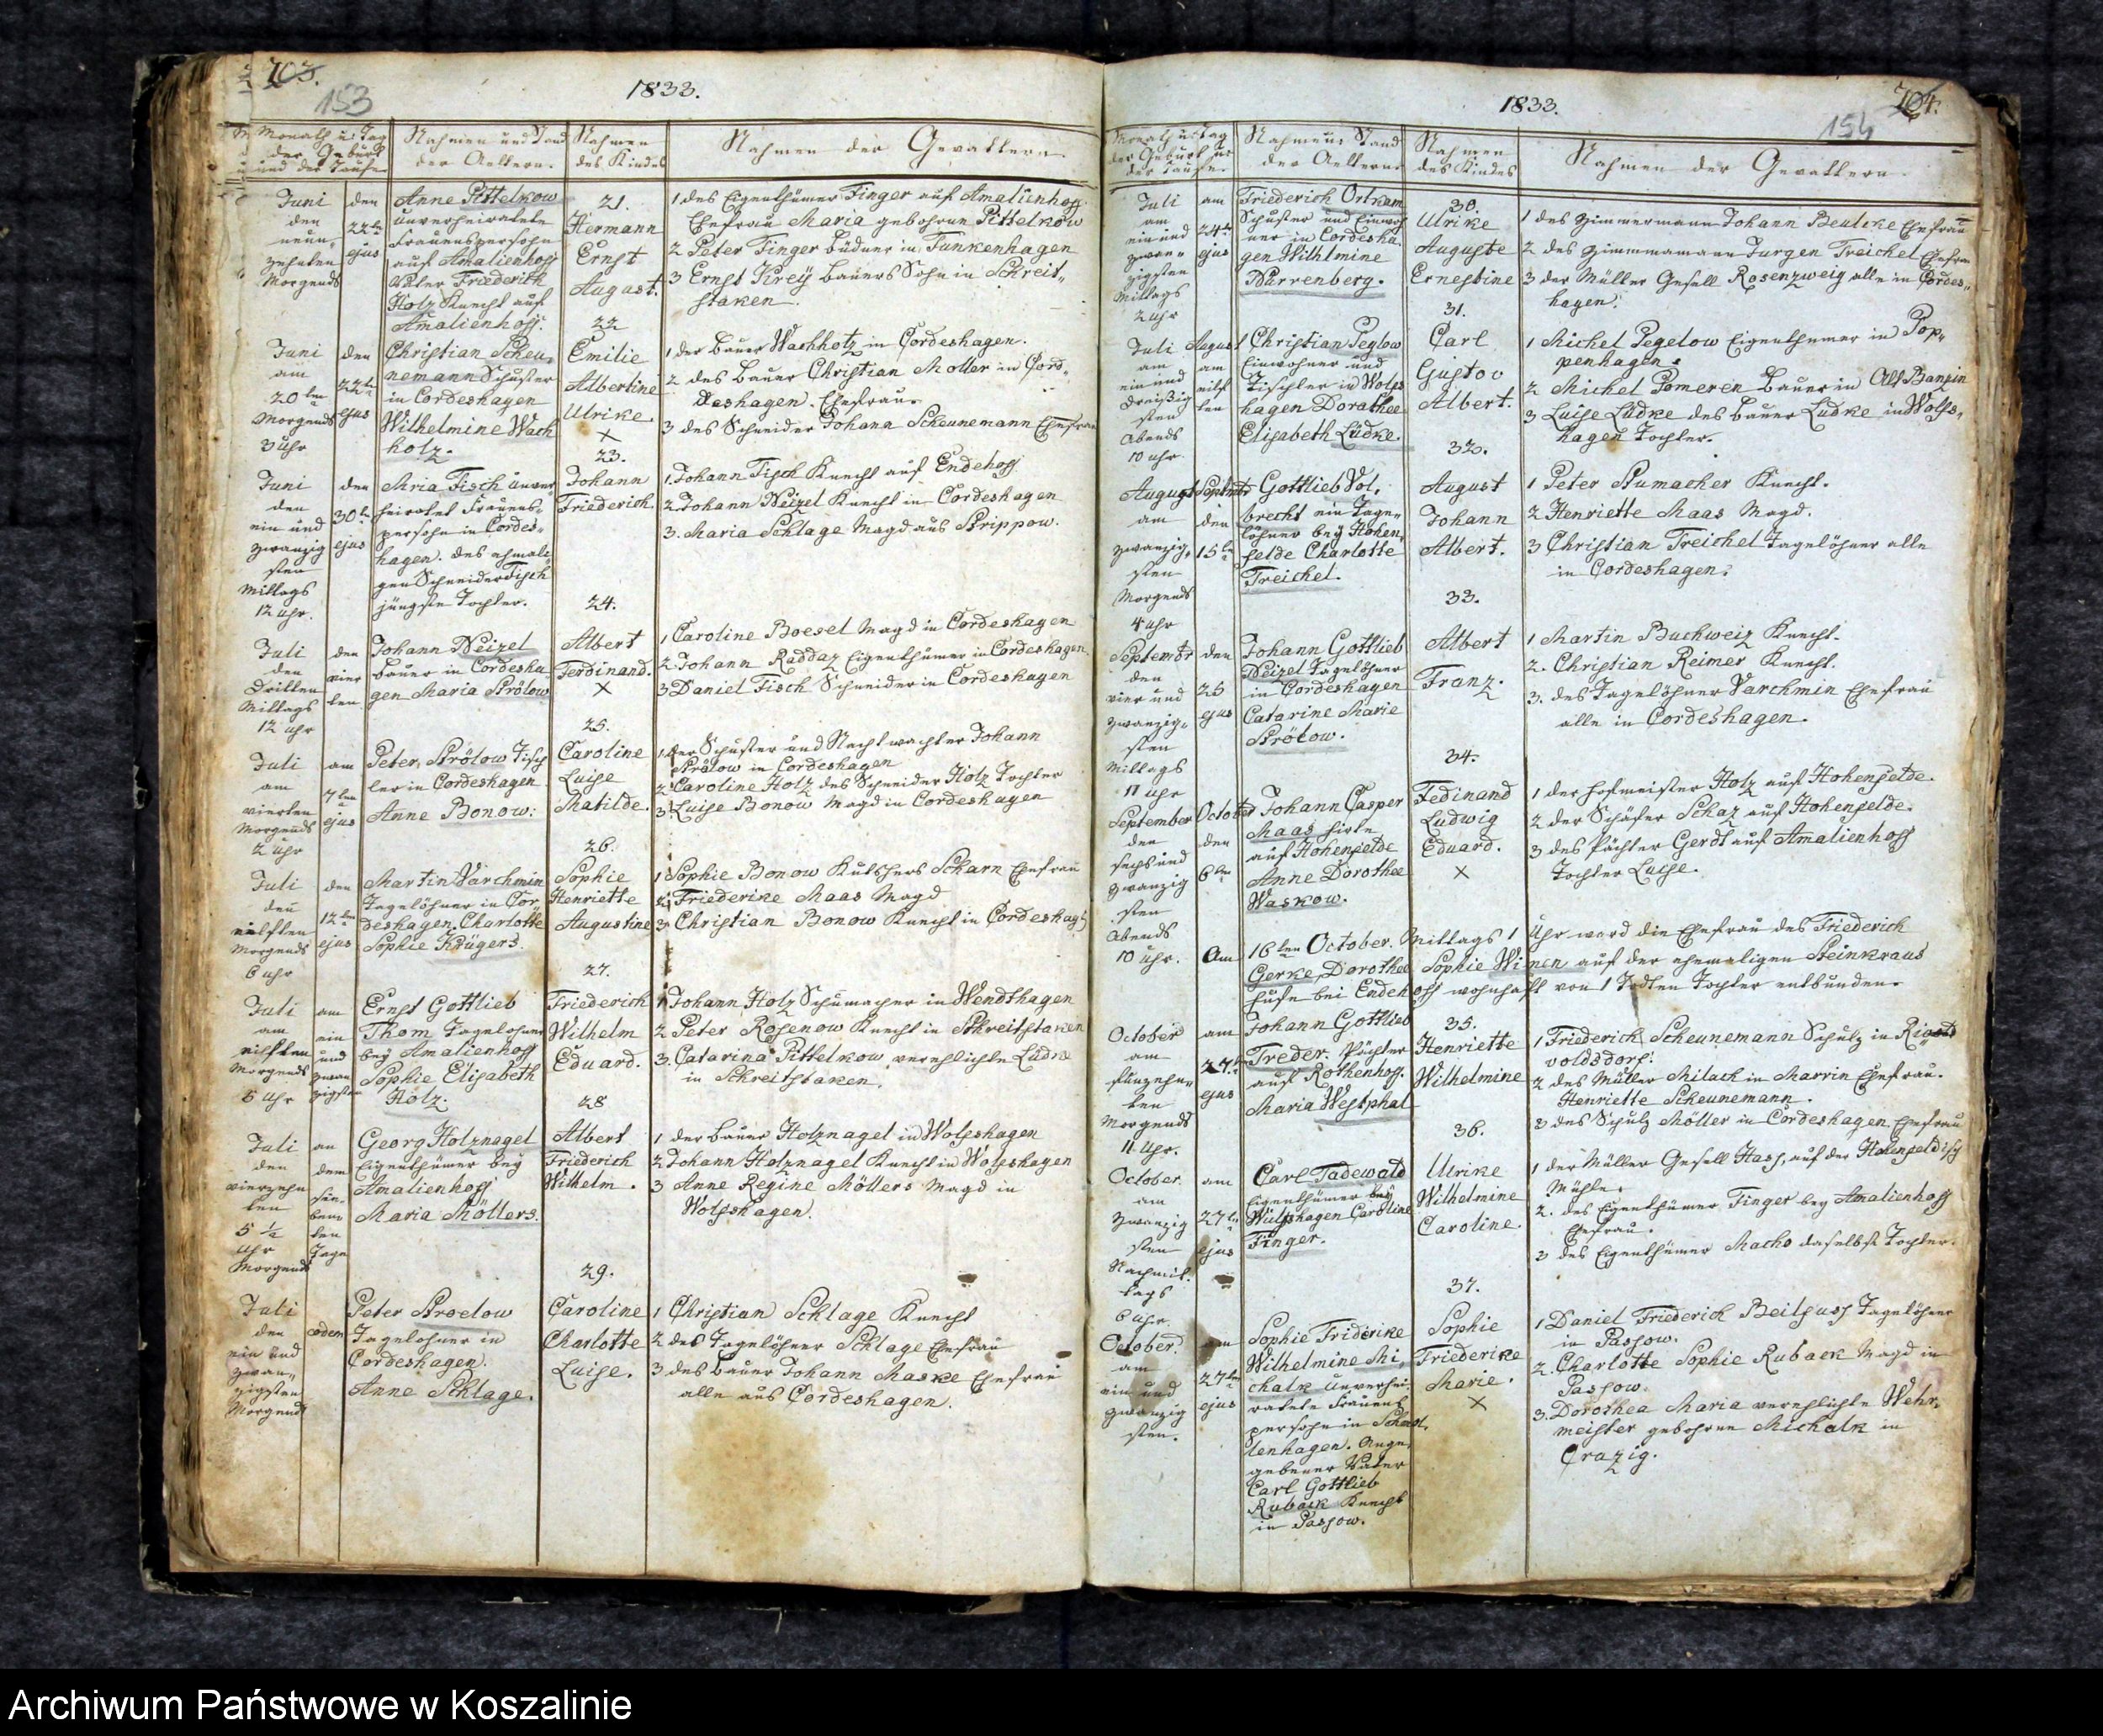 703.
153
1833.
Monath u: Tag der Geburt und der Taufe
Nahmen und Stand der Aeltern.
Nahmen des Kindes
Nahmen der Gevattern.
Juni den neun- zehnten Morgends
den 22ten ejus
Anne Pittelkow
unverheiratete
Frauensperson
auf Amalienhoff
Vater Friederich
Holz Knecht auf
Amalienhoff.
21.
Hermann
Ernst
August.
1 des Eigenthümer Finger auf Amalienhoff
Ehefrau Maria gebohrne Pittelkow
2 Peter Finger Büdner in Funkenhagen
3 Ernst Krey Bauers Sohn in Schreit-
staken.
Juni am 20ten Morgends 3 Uhr
den 22te ejus
Christian Scheu-
nemann Schuster
in Cordeshagen
Wilhelmine Wach
holz.
22
Emilie
Albertine
Ulrike.
×
1 der Bauer Wachholz in Cordeshagen.
2 des Bauer Christian Moller in Cord-
deshagen. Ehefrau
3 des Schneider Johann Scheunemann Ehefrau
Juni den ein und zwanzig sten Mittags 12 Uhr.
den 30te ejus
Maria Tisch unver
heiratet Frauens-
persohn in Cordes-
hagen. des ehmali
gen Schneider Tisch
jüngste Tochter.
23.
Johann
Friederich.
1. Johann Tisch Knecht auf Endehoff.
2. Johann Neizel Knecht in Cordeshagen
3. Maria Schlage Magd aus Strippow.
Juli den Dritten Mittags 12 Uhr
den vier ten
Johann Neizel
Bauer in Cordesha
gen Maria Strölow
24.
Albert
Ferdinand.
×
1 Caroline Boesel Magd in Cordeshagen
2. Johann Raddaz Eigenthümer in Cordeshagen.
3 Daniel Tisch Schneider in Cordeshagen
Juli am vierten Morgends 2 Uhr
am 7ten ejus
Peter Strölow Tisch
ler in Cordeshagen
Anne Bonow:
25.
Caroline
Luise
Mathilde.
1. der Schuster und Nachtwachter Johann
Strölow in Cordeshagen
2 Caroline Holz des Schneider Holz Tochter
3. Luise Bonow Magd in Cordeshagen
Juli den eilften Morgends 6 Uhr
den 12ten ejus
Martin Varchmin
Tagelöhner in Cor-
deshagen. Charlotte
Sophie Krügers.
26.
Sophie
Henriette
Augustine
1 Sophie Bonow Kutschers Scharn Ehefrau
2 Friederike Maas Magd
3 Christian Bonow Knecht in Cordeshag
Juli am eilften Morgends 5 Uhr
am ein und zwan zigsten
Ernst Gottlieb
Thom Tagelohner
bey Amalienhoff
Sophie Elisabeth
Holz.
27.
Friederich
Wilhelm
Eduard.
1 Johann Holz Schumacher in Wendthagen
2 Peter Rosenow Knecht in Schreitstaken
3. Catarina Pittelkow, verehlichte Lüdke
in Schreitstaken.
Juli den vierzehn ten 5 ½ Uhr Morgends
an dem sie- ben- ten Tage
Georg Holznagel
Eigenthümer bey
Amalienhoff
Maria Möllers.
28
Albert
Friederich
Wilhelm.
1 der Bauer Holznagel in Wolfshagen
2 Johann Holznagel Knecht in Wolfshagen
3 Anne Regine Möllers Magd in
Wolfshagen.
Juli den ein und zwan- zigsten Morgends
eodem
Peter Stroelow
Tagelohner in
Cordeshagen.
Anne Schlage.
29.
Caroline
Charlotte
Luise.
1 Christian Schlage Knecht
2 des Tagelöhner Schlage Ehefrau
3 des Bauer Johann Maske Ehefrau
alle aus Cordeshagen.
704.
154
1833.
Monath u: Tag der Geburt u: der Taufe
Nahmen u: Stand der Aeltern
Nahmen des Kindes
Nahmen der Gevattern.
Juli am ein und zwan- zigsten Mittags 2 Uhr
am 24te ejus
Friederich Ostkam
Schuster und Einwoh
ner in Cordesha-
gen Wilhlmine
Dürrenberg.
30.
Ulrike
Auguste
Ernestine
1 des Zimmermann Johann Beulcke Ehefrau
2 des Zimmmamann Jurgen Treichel Ehefrau
3 der Müller Gesell Rosenzweig alle in Cordes-
hagen.
Juli am ein und dreißig sten Abends 10 Uhr
August am eilf ten
Christian Peglow
Einwohner und
Tischler in Wolfs
hagen Dorathee
Elisabeth Lüdke.
31.
Carl
Gustov
Albert.
1 Michel Pegelow Eigenthumer in Pop-
penhagen.
2 Michel Pomeren Bauer in Alt Banzin
3 Luise Lüdke des Bauer Ludke in Wolfs-
hagen Tochter.
August am zwanzig- sten Morgends 4 Uhr
Septmbr den 15te
Gottlieb Vol-
brecht ein Tage-
löhner bey Hohen-
felde Charlotte
Treichel.
32.
August
Johann
Albert.
1 Peter Stumacher Knecht.
2 Henriette Maas Magd.
3 Christian Treichel Tagelöhner alle
in Cordeshagen.
Septembr den vier und zwanzig- sten Mittags 11 Uhr
den 25 ejus
Johann Gottlieb
Neizel Tagelöhner
in Cordeshagen
Catarine Marie
Strölow.
33.
Albert
Franz.
1 Martin Buchweiz Knecht.
2. Christian Reimer Knecht.
3. des Tagelöhner Varchmin Ehefrau
alle in Cordeshagen.
September den sechs und zwanzig sten Abends 10 Uhr.
October den 6ten
Johann Casper
Maas Hirte
auf Hohenfelde
Anne Dorothee
Waskow.
34.
Fedinand
Ludwig
Eduard.
×
1 der Hofmeister Holz auf Hohenfelde.
2 der Schäfer Schaz auf Hohenfelde.
3 des Pächter Gerdt auf Amalienhoff
Tochter Luise.
Am 16ten October. Mittags 1 Uhr ward die Ehefrau des Friederich
Gerke, Dorothee Sophie Winen auf der ehemaligen Steinkraus
Hufe bei Endehoff wohnhaft von 1 Todten Tochter entbunden.
October am funzehn- ten Morgends 11 Uhr.
am 27te ejus
Johann Gottlieb
Treder. Pächter
auf Rothenhoff.
Maria Westphal
35.
Henriette
Wilhelmine
1 Friederich Scheunemann Schulz in
voldsdorf.
2 des Müller Milach in Marrin Ehefrau.
Henriette Scheunemann.
3 des Schulz Möller in Cordeshagen Ehefrau
October. am zwanzig sten Nachmit- tags 6 Uhr.
am 27te ejus
Carl Tadewald
Eigenthümer bey
Wulfshagen Caroline
Finger.
36.
Ulrike
Wilhelmine
Caroline.
1 der Müller Gesell Hass, auf der Hohenfeldisch
Mühle.
2. des Eigenthümer Finger bey Amalienhoff
Ehefrau.
3 des Eigenthümer Machs daselbst Tochter.
October. am ein und zwanzig sten.
am 27te ejus
Sophie Friderike
Wilhelmine Mi-
chalk unverhei-
ratete Frauens
persohn in
lenhagen. Ange-
gebener Vater
Carl Gottlieb
Ruback Knecht
in Passow.
37.
Sophie
Friederike
Marie.
×
1 Daniel Friederich Beilfuss Tagelöhner
in Passow.
2. Charlotte Sophie Ruback Magd in
Passow.
3. Dorothea Maria verehlichte Wehr-
meister gebohrne Michalk in
Crazig.
Archiwum Państwowe w Koszalinie